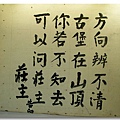 方向辨不清
古堡在山頂
你若不知去
可以問莊主
莊主